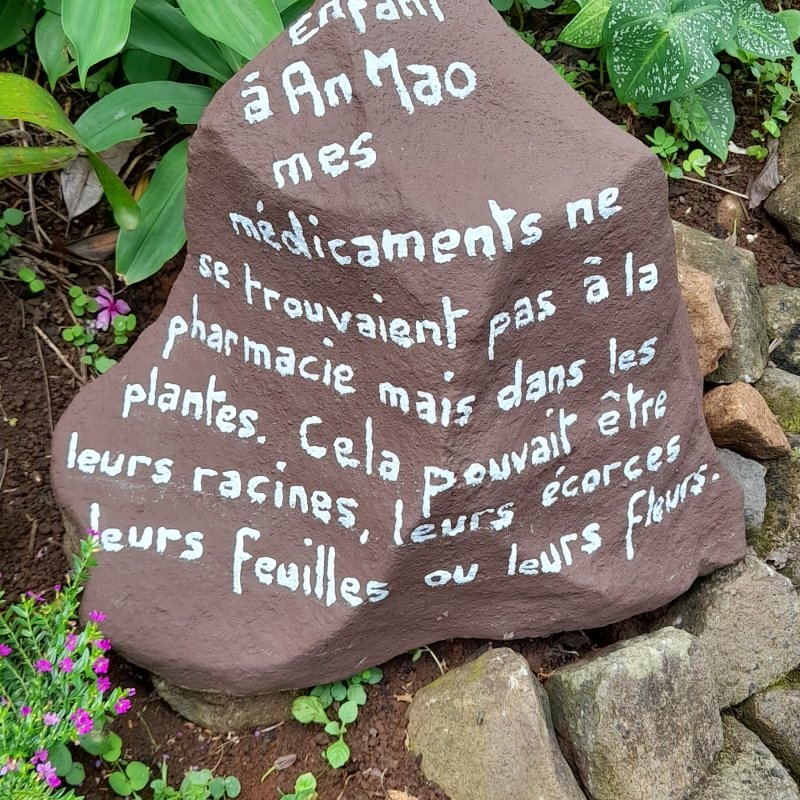 enfant
à An Mao
mes
médicaments ne
se trouvaient pas à la
pharmacie mais dans les
plantes. Cela pouvait être
leurs racines, leurs écorces
leurs feuilles ou leurs fleurs.